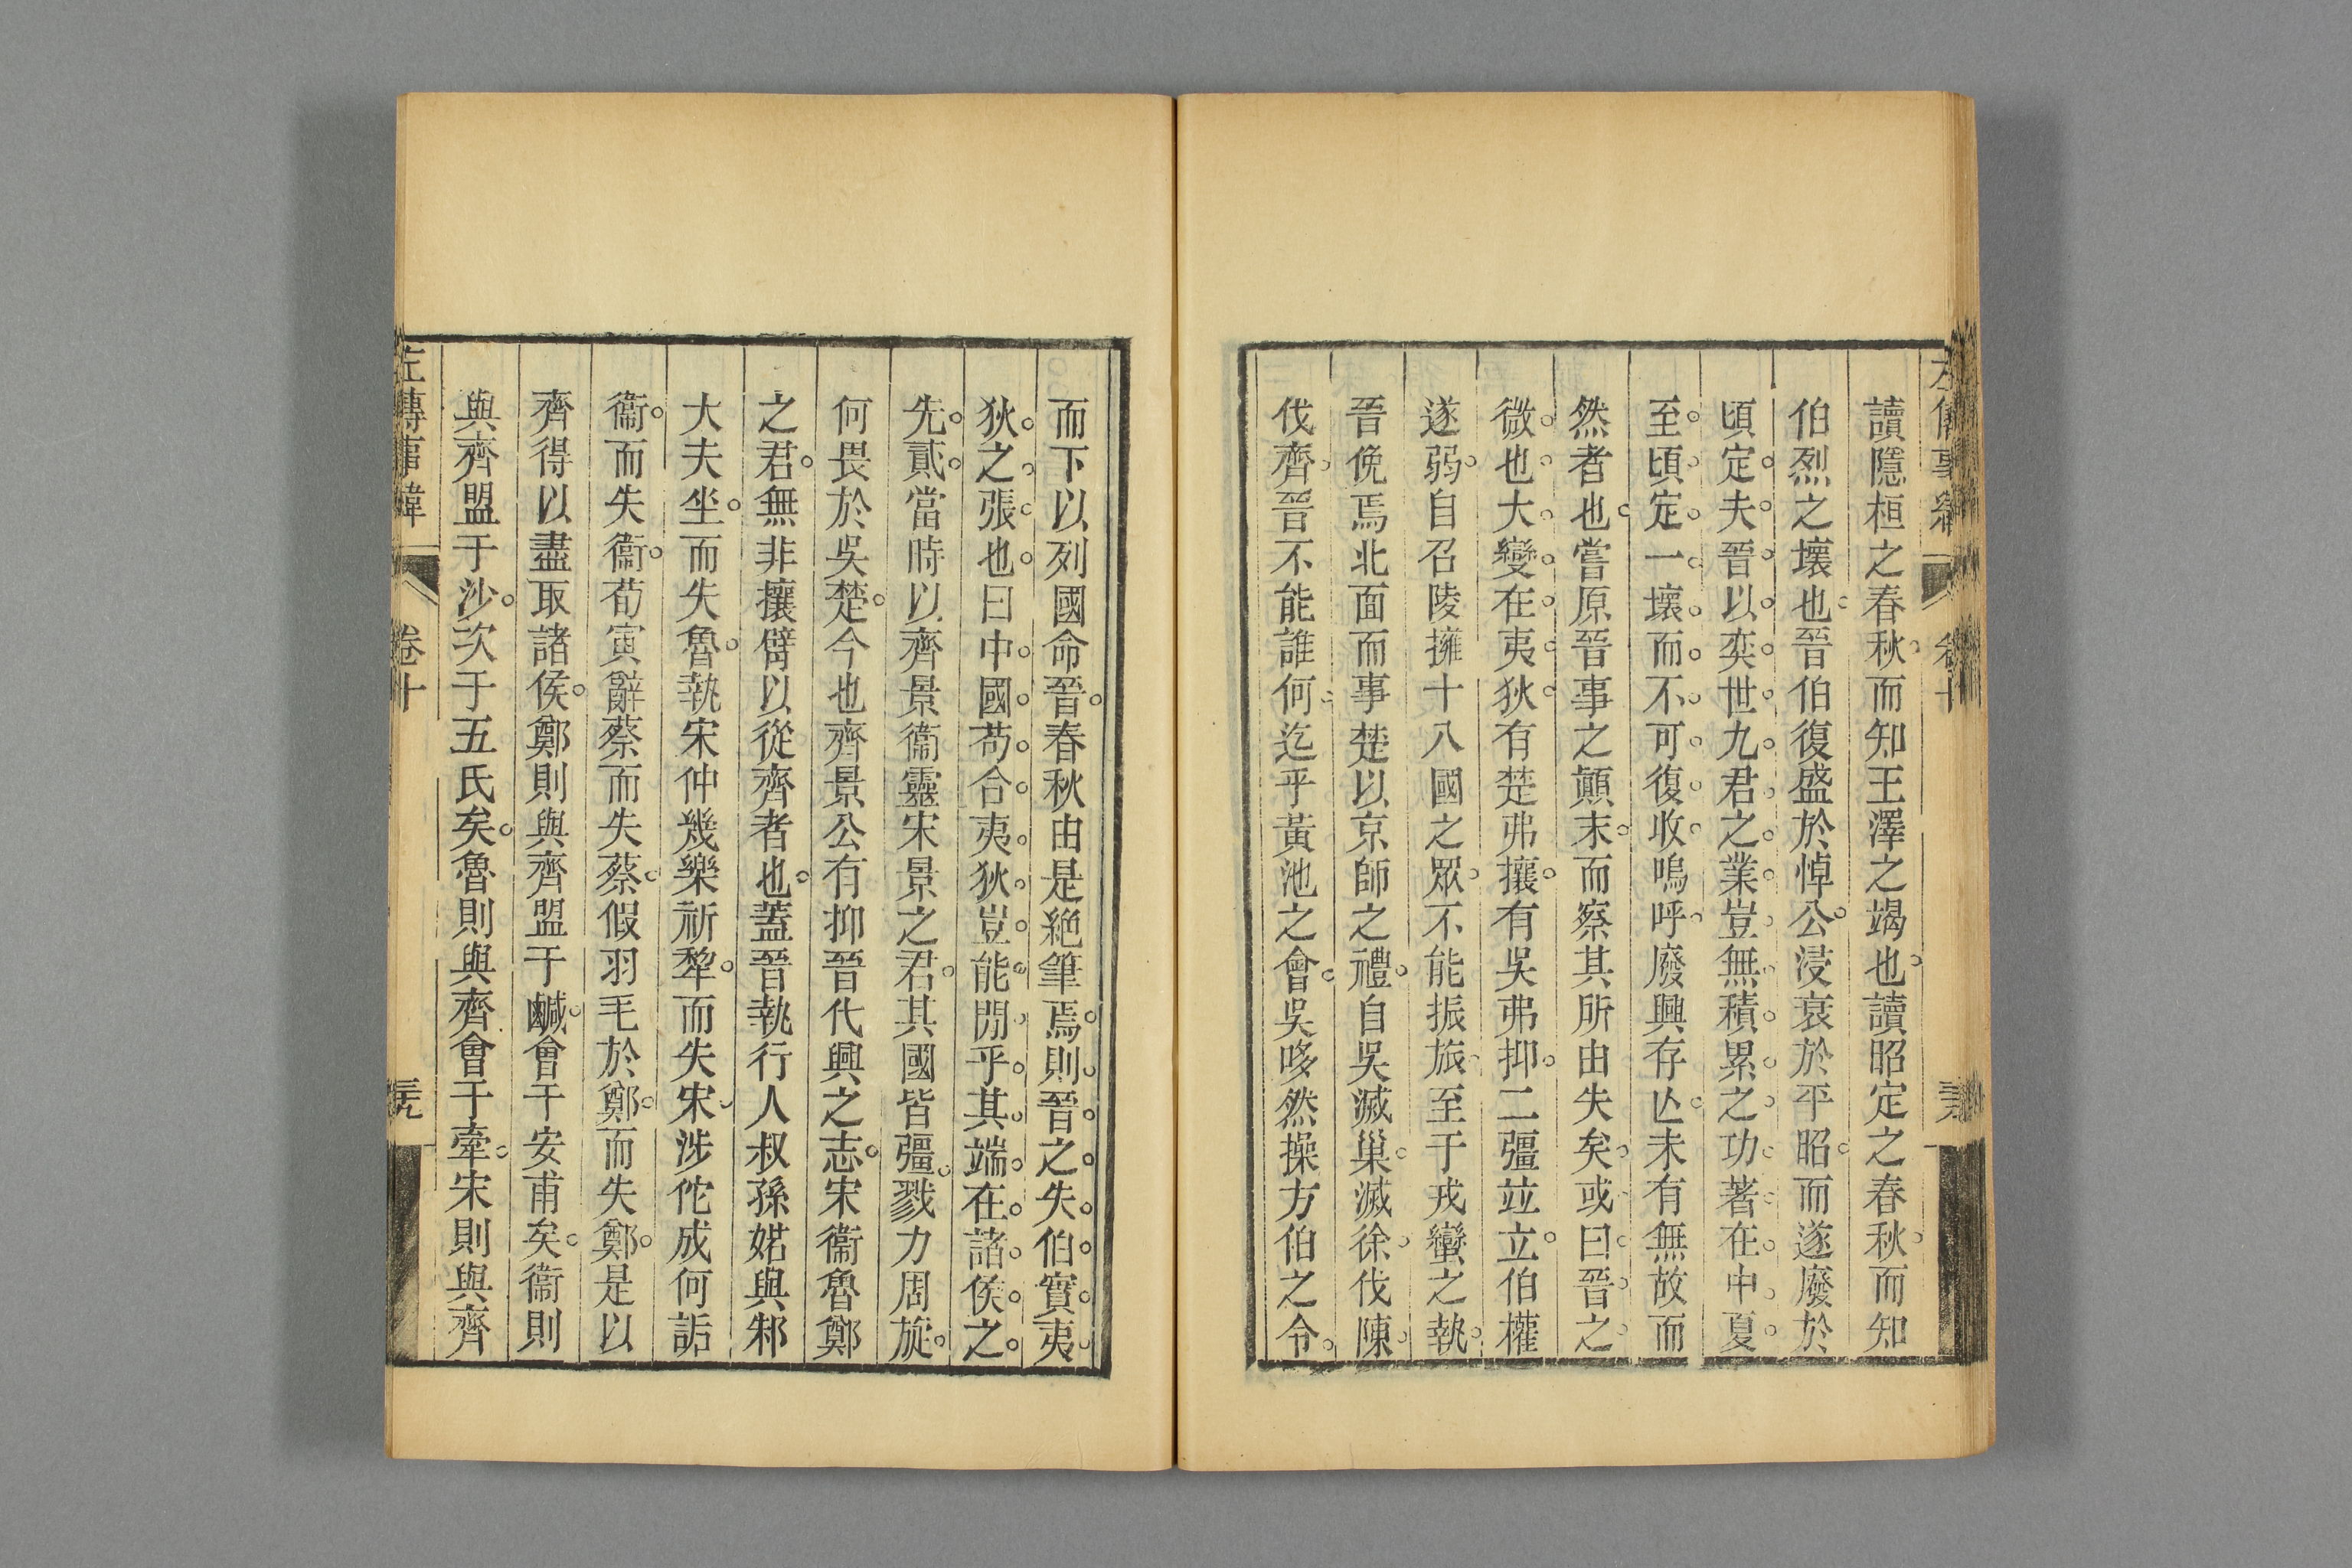 讀隱桓之春秋而知王澤之竭也讀昭定之春秋而知
伯烈之壞也晉伯復盛於悼公浸衰於平昭而遂廢於
頃定夫晉以奕世九君之業豈無積累之功著在中夏
至頃定一壞而不可復收嗚呼廢興存亾未有無故而
然者也嘗原晉事之顛末而察其所由失矣或曰晉之
微也大變在夷狄有楚弗攘有吳弗抑二彊竝立伯權
遂弱自召陵擁十八國之眾不能振旅至于戎蠻之執
晉俛焉北面而事楚以京師之禮自吳滅巢滅徐伐陳
伐齊晉不能誰何迄乎黃池之會吳哆然操方伯之令
而下以列國命晉春秋由是絕筆焉則晉之失伯實夷
狄之張也曰中國苟合夷狄豈能閒乎其端在諸侯之
先貳當時以齊景衞靈宋景之君其國皆彊戮力周旋
何畏於吳楚今也齊景公有抑晉代興之志宋衞魯鄭
之君無非攘臂以從齊者也蓋晉執行人叔孫婼與邾
大夫坐而失魯執宋仲幾樂祈犂而失宋涉佗成何詬
衞而失衞荀寅辭蔡而失蔡假羽毛於鄭而失鄭是以
齊得以盡取諸侯鄭則與齊盟于鹹會于安甫矣衞則
與齊盟于沙次于五氏矣魯則與齊會于牽宋則與齊
左傳事緯
卷十